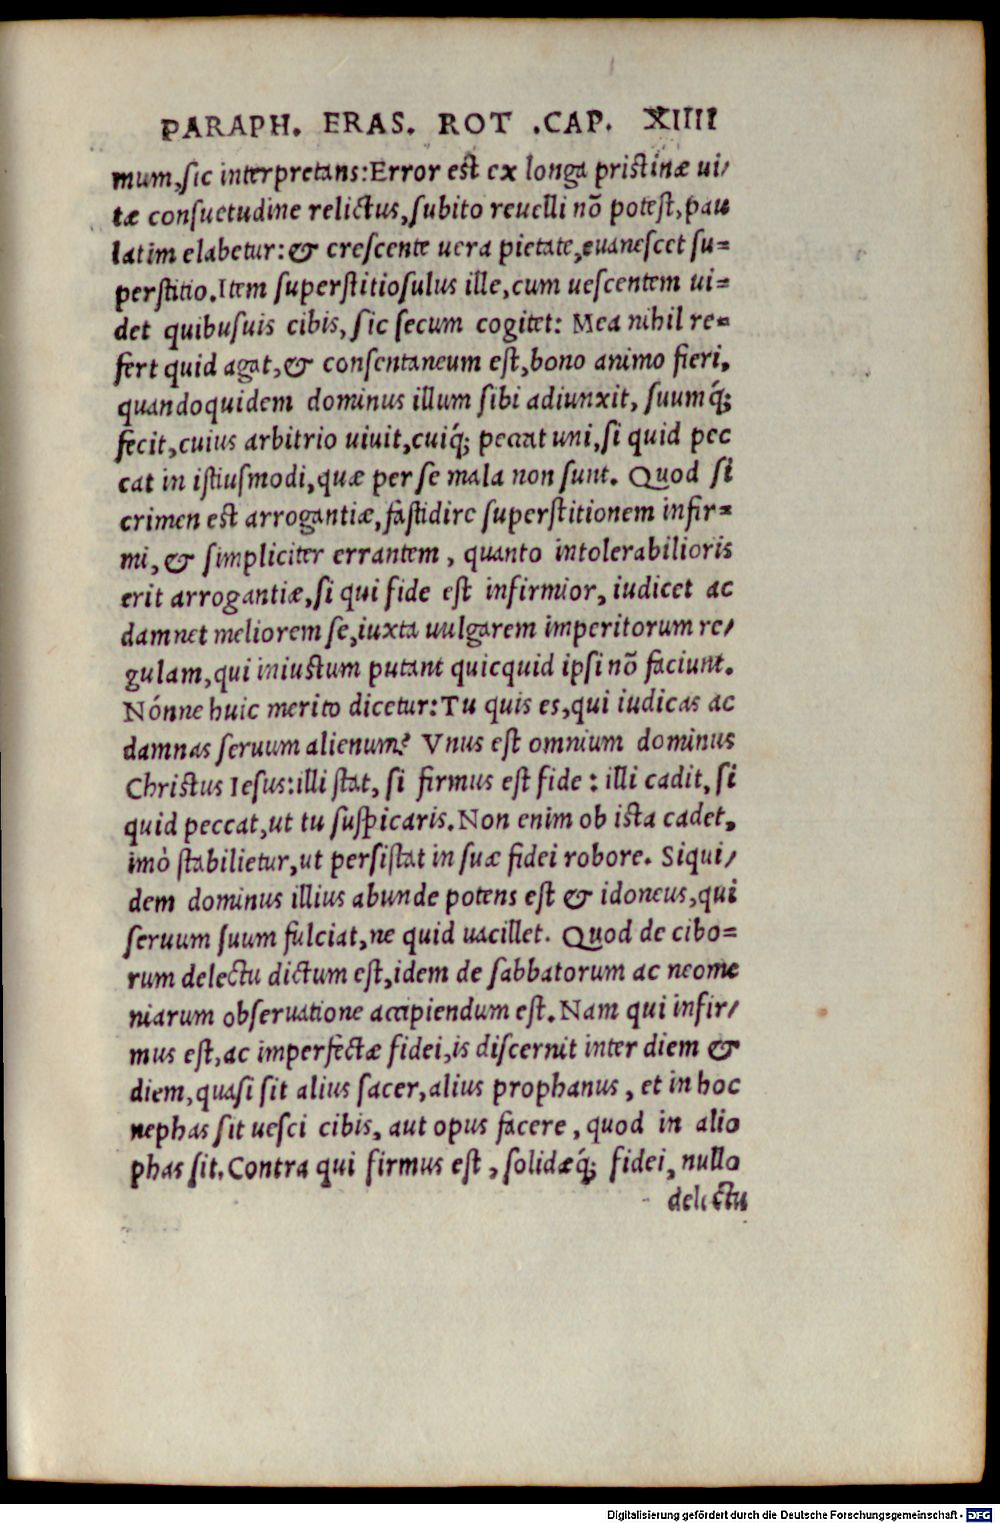 PARAPH. ERAS. ROT .CAP. XIIII
mum,sic interpretans:Error est ex longa pristinæ ui/
tæ consuetudine relictus,subito reuelli nõ potest,pau
latim elabetur:& crescente uera pietate,euanescet su=
perstitio.Item superstitiosulus ille,cum uescentem ui=
det quibusuis cibis, sic secum cogitet: Mea nihil re=
fert quid agat,& consentaneum est,bono animo fieri,
quandoquidem dominus illum sibi adiunxit, suumq́;
fecit,cuius arbitrio uiuit,cuiq́; peccat uni,si quid pec
cat in istiusmodi,quæ per se mala non sunt. Quod si
crimen est arrogantiæ,fastidire superstitionem infir=
mi,& simpliciter errantem, quanto intolerabilioris
erit arrogantiæ,si qui fide est infirmior, iudicet ac
damnet meliorem se,iuxta uulgarem imperitorum re/
gulam,qui iniustum putant quicquid ipsi nõ faciunt.
Nónne huic merito dicetur:Tu quis es,qui iudicas ac
damnas seruum alienum? Vnus est omnium dominus
Christus Iesus:illi stat, si firmus est fide : illi cadit, si
quid peccat,ut tu suspicaris.Non enim ob ista cadet,
imò stabilietur,ut persistat in suæ fidei robore. Siqui/
dem dominus illius abunde potens est & idoneus,qui
seruum suum fulciat,ne quid uacillet. Quod de cibo=
rum delectu dictum est,idem de sabbatorum ac neome
niarum obseruatione accipiendum est.Nam qui infir/
mus est,ac imperfectæ fidei,is discernit inter diem &
diem,quasi sit alius sacer,alius prophanus, et in hoc
nephas sit uesci cibis, aut opus facere, quod in alio
phas sit.Contra qui firmus est, solidæq́; fidei, nullo
delectu
Digitalisierung gefördert durch die Deutsche Forschungsgemeinschaft - DFG